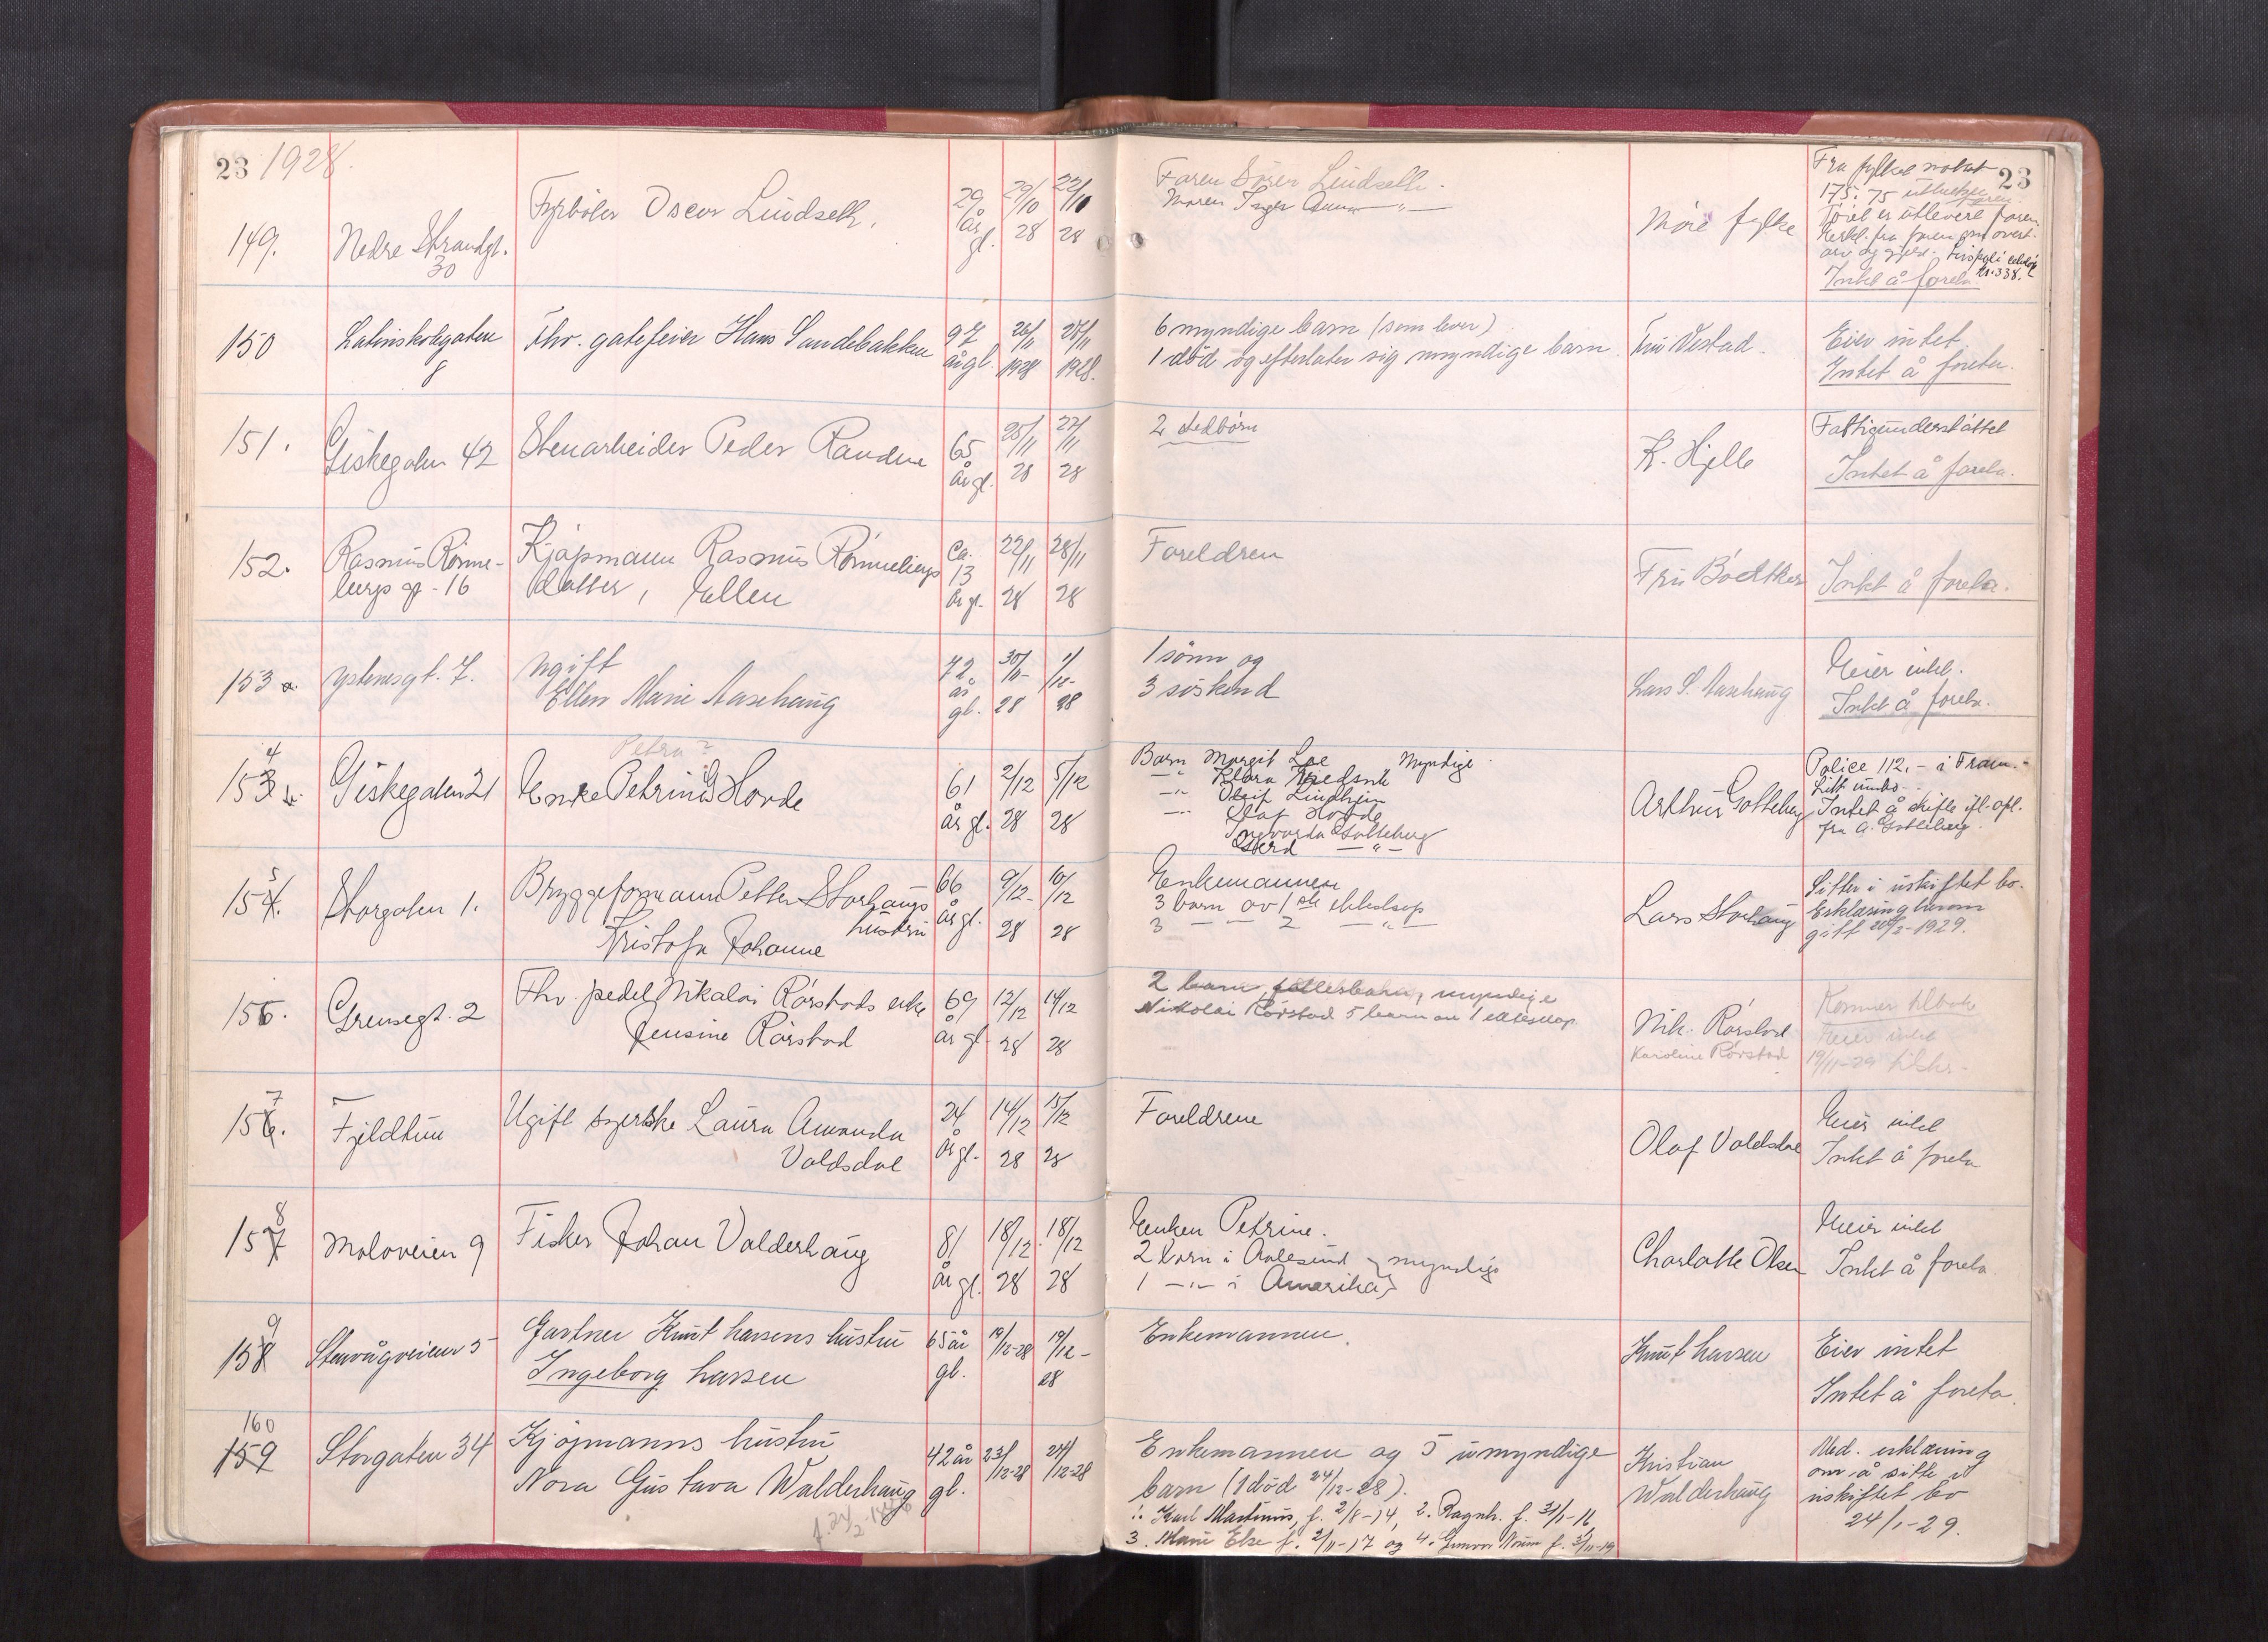 23 1928.
23
149.
Nedre Strandgt.
30
Fyrbøter Oscar Lindseth.
29 år gl.
29/10 28
22/11 28
Faren Sören Lindseth.
Moren Inger Anna —"—
Møre fylke
Fra fylket mottat
175.75
Intet å foreta.
150
Latinskolegaten
8
Fhv. gatefeier Hans Sandebakken
97 år gl.
26/11 1928
28/11 1928.
6 myndige barn (som lever)
1 död og efterlater sig myndige barn.
Fru Vestad.
Eier intet.
Intet å foreta.
151.
Giskegaten 42
Stenarbeider Peder Randen
65 år gl.
25/11 28
27/11 28
2 stedbörn
K. Hjelle
Fattigunderstøttet
Intet å foreta.
152.
Rasmus Rönne-
bergs gt. 16
Kjøpmann Rasmus Rönnebergs
datter, Ellen
Ca. 13 år gl.
22/11 28
28/11 28
Foreldren
Fru Bödtker
Intet å foreta.
153 a.
Ystenesgt. 7.
Ugift
Ellen Marie Aasehaug
72 år gl.
30/11- 28
1/12- 28
1 sönn og
3 söskend
Lars S. Aasehaug
Eier intet.
Intet å foreta.
4
153 b.
Giskegaten 21
Petra?
Enke Petrine G Hovde
61 år gl.
2/12 28
5/12 28
Barn Margit Loe Myndige.
—"— Klara
—"— Lindhjem
—"— Olaf Hovde
Ingvarda Gotteberg
—"—
Arthur Gotteberg
Police 112.- i Fram.-
Litt innbo.-
Intet å skifte ifl. opl.
fra A. Gotteberg.
5
154.
Storgaten 1.
Bryggeformann Petter Storhaugs
hustru
Kristofa Johanne
66 år gl.
9/12- 28
10/12 28
Enkemannen
3 barn av 1ste ekteskap
3 — — 2 —"—
Lars Storhaug
Sitter i uskiftet bo.
Erklæring herom
gitt 20/2-1929.
156.
Grensegt. 2
Fhv. pedel Nikolai Rörstads enke
Jensine Rörstad
69 år gl.
12/12 28
14/12 28
2 barn, fellesbarn, myndige
Nikolai Rörstad 5 barn av 1 ekteskap
Nik. Rörstad
Karoline Rörstad
Kommer tilbake
Eier intet
19/11-29
7
156.
Fjeldtun
Ugift syerske Laura Amanda
Valdsdal
24 år gl.
14/12 28
15/12 28
Foreldrene
Olaf Valdsdal
Eier intet
Intet å foreta
8
157
Moloveien 9
Fisker Johan Valderhaug
81 år gl.
18/12. 28
18/12 28
Enken Petrine.
2 barn i Aalesund } myndige
1 —"— i Amerika }
Charlotte Olsen
Eier intet
Intet å foreta
9
158
Stenvågveien 5
Gartner Knut Larsens hustru
Ingeborg Larsen
65 år gl.
19/12-28
19/12-28
Enkemannen.
Knut Larsen
Eier intet
Intet å foreta.
160
159
Storgaten 34
Kjöpmanns hustru
Nora Gustava Walderhaug
42 år gl.
23/12-28
24/12-28
Enkemannen og 5 umyndige
barn (1 död 24/12-28).
1. Karl Martinus, f. 2/8-14, 2. Ragnh. f. 31/1-16
3. Marie Else f. 2/11-17 og 4. Gunvor f. 3/11-19
Kristian
Walderhaug
Med. erklæring
om å sitte i
uskiftet bo
24/1-29.